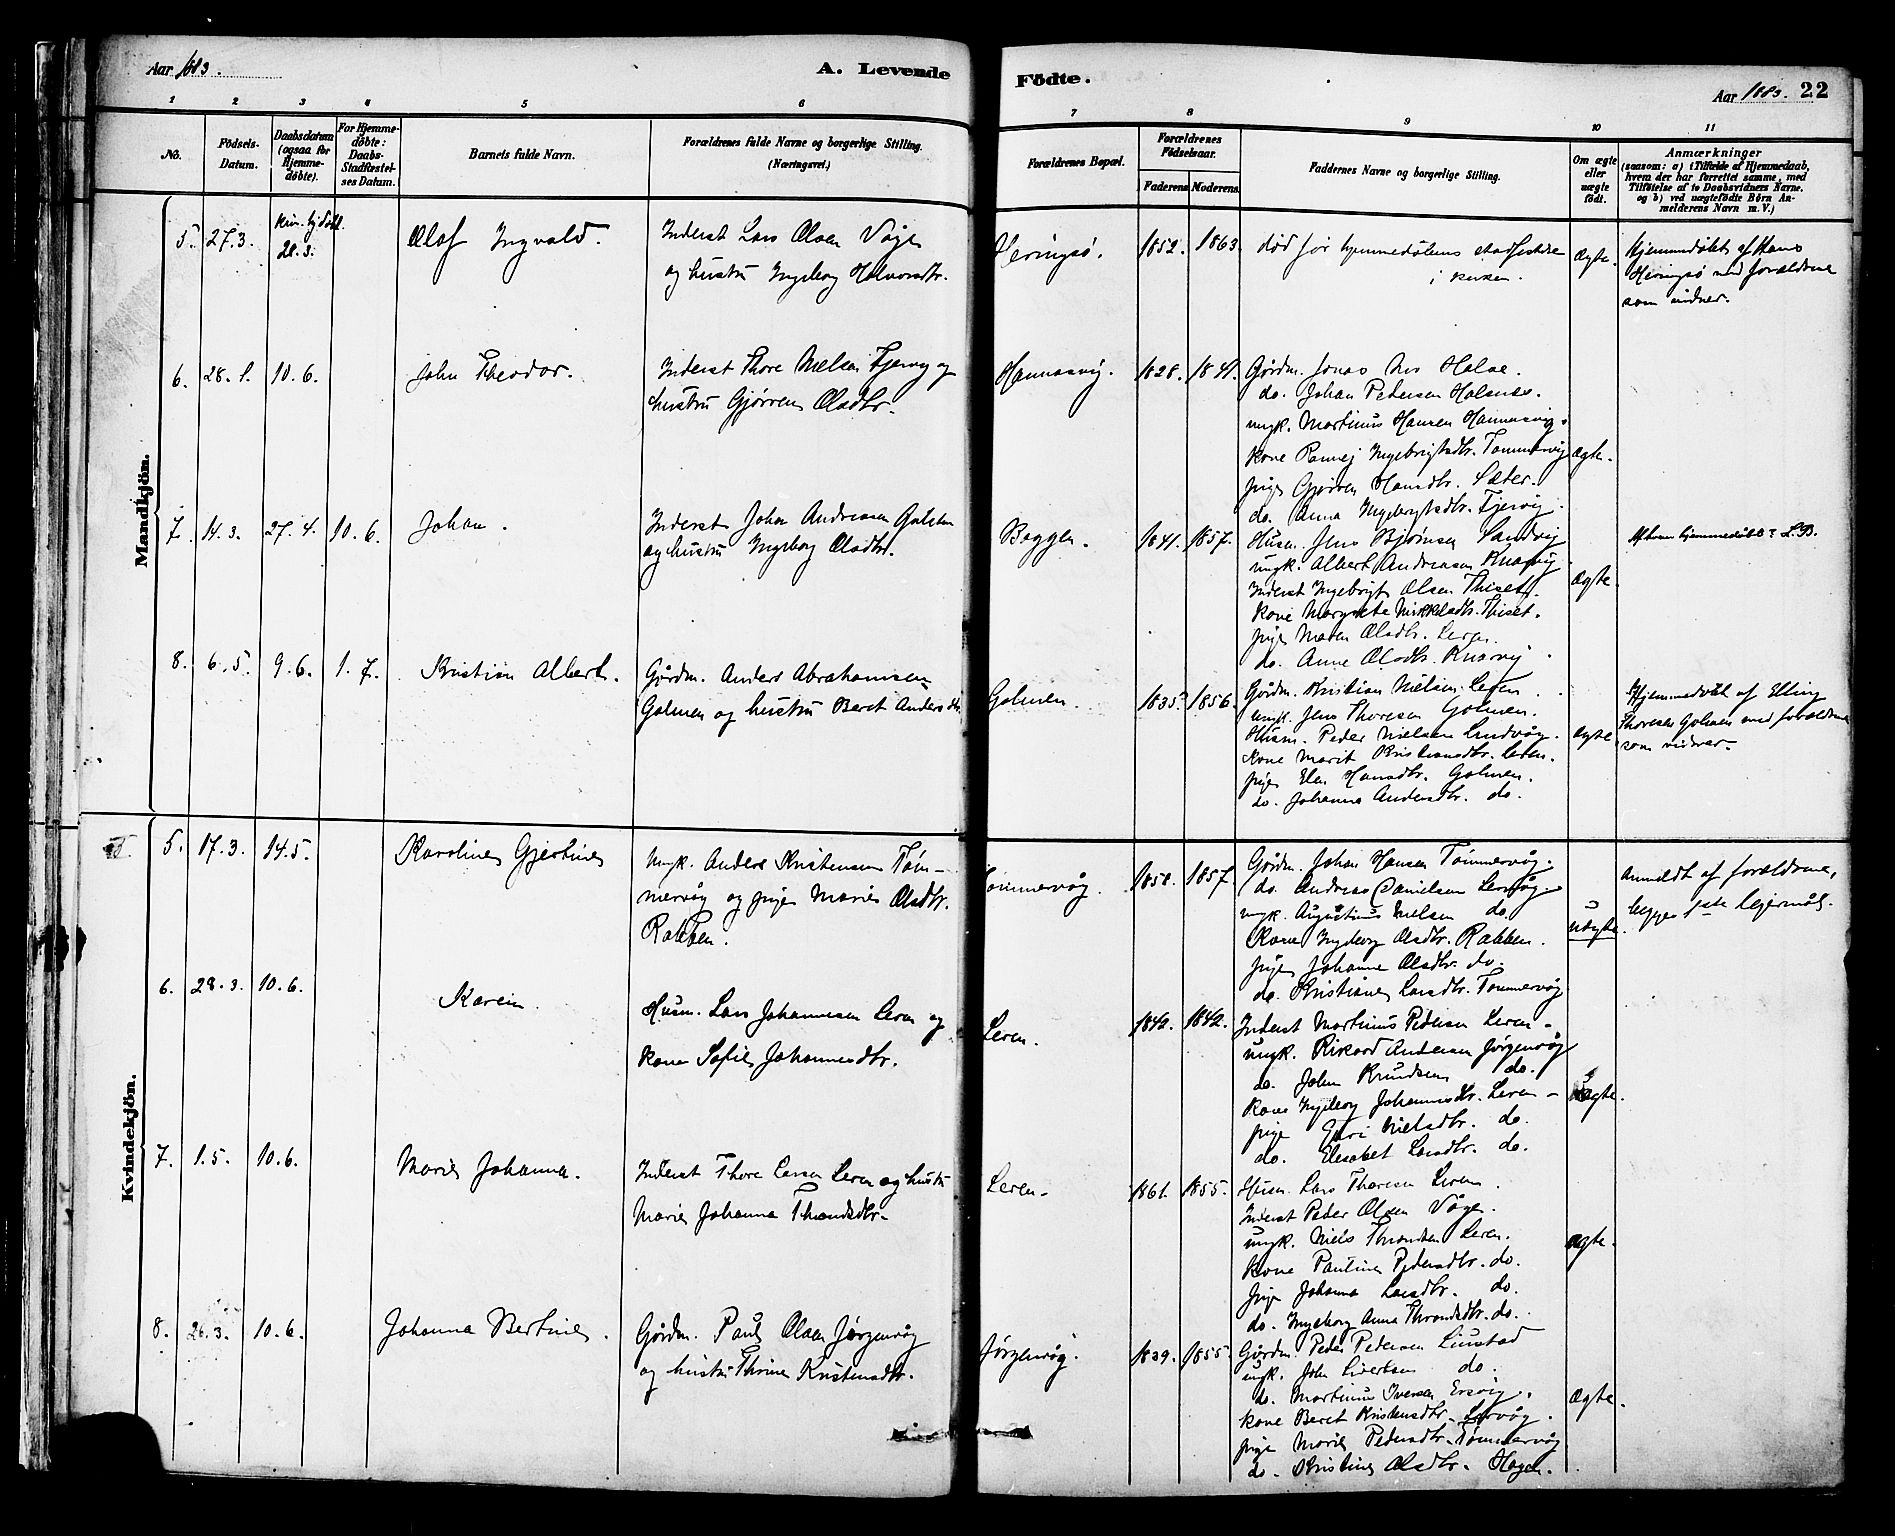 Aar 1883.
A. Levende
Födte.
Aar 1883. 22
1 2 3 4 5 6 7 8 9 10 11
No.
Födsels-Datum.
Daabsdatum (ogsaa for Hjemme-döbte).
For Hjemme-döbte: Daabs-Stadfæstel-ses Datum.
Barnets fulde Navn.
Forældrenes fulde Navne og borgerlige Stilling.
(Næringsvei.)
Forældrenes Bopæl.
Forældrenes Födselsaar.
Faderens Moderens.
Faddernes Navne og borgerlige Stilling.
Om ægte eller uægte födt.
Anmærkninger
(saasom: a) i Tilfælde af Hjemmedaab,
hvem der har forrettet samme, med
Tilföielse af to Daabsvidners Navne.
og b) ved uægtefödte Börn An-
melderens Navn m. V.)
Mandkjön.
5. 27.3. kun hjdöbt. 28.3. Olaf Ingvald.
Inderst Lars Olsen Våge
og hustru Ingeborg Halvorsdtr.
Heringsø. 1852. 1863.
død før hjemmedåbens stadfæstelse
i kirken.
Ægte.
Hjemmedøbt af Hans
Heringsø med forældrene
som vidner.
6. 28.1. 10.6. John Theodor.
Inderst Thore Nielsen Fjervig og
hustru Gjørren Olsdtr.
Hannasvig. 1828. 1841.
Gårdm. Jonas Halse.
do. Johan Pedersen Halsnes.
ungk. Martinus Hansen Hannasvig.
kone Rannej Ingebrigtsdtr. Tømmervig
pige Gjørren Hansdtr. Sæter.
do. Anna Ingebrigtsdtr. Fjervig.
Ægte.
7. 14.3. 27.4. 10.6. Johan.
Inderst Johan Andreasen Golmen
og hustru Ingeborg Olsdtr.
Boggen. 1841. 1857.
Husm. Jens Bjørnsen Sandvig
ungk. Albert Andreasen Knarvig
Inderst Ingebrigt Olsen Thiset.
kone Margrete Mikkelsdtr. Thiset.
pige Maren Olsdtr. Leren.
do. Anne Olsdtr. Knarvig.
Ægte.
Af hvem hjemmedøbt? L.B.
8. 6.5. 9.6. 1.7. Kristian Albert.
Gårdm. Anders Abrahamsen
Golmen og hustru Beret Andersdtr.
Golmen. 1835. 1856.
Gårdm. Kristian Nielsen Leren.
ungk. Jens Thoresen Golmen.
Husm. Peder Nielsen Sandvåg.
kone Marit Kristiansdtr. Leren.
pige Elen Hansdtr. Golmen.
do. Johanna Andersdtr. do.
ægte.
Hjemmedøbt af Elling
Thoresen Golmen med forældrene
som vidner.
Kvindekjön.
5. 17.3. 14.5. Karoline Gjertine
Ungk. Anders Kristensen Tøm-
mervåg og pige Marie Olsdtr.
Rakken.
Tømmervåg. 1858. 1857.
Gårdm. Johan Hansen Tømmervåg.
do. Andreas Danielsen Lervåg.
ungk. Augustinus Nielsen do.
Kone Ingeborg Olsdtr. Rakken.
pige Johanne Olsdtr. do.
do. Kristiane Larsdtr. Tømmervåg
uægte.
anmeldt af forældrene,
begges 1ste lejermål.
6. 28.3. 10.6. Karen.
Husm. Lars Johannesen Leren og
kone Sofie Johannesdtr.
Leren. 1842. 1842.
Inderst Martinus Pedersen Leren.
ungk. Rikard Andersen Jørgenvåg
do. John Knudsen do.
kone Ingeborg Johannesdtr. Leren
pige Guri Nielsdtr. do.
do. Elisabet Larsdtr. do.
Ægte.
7. 1.5. 10.6. Marie Johanna.
Inderst Thore Larsen Leren og hustru
Marie Johanna Throndsdtr.
Leren. 1861. 1855.
Husm. Lars Thoresen Leren.
Inderst Peder Olsen Våge.
ungk. Niels Throndsen Leren.
kone Pauline Pedersdtr. do.
pige Johanna Larsdtr. do.
do. Ingeborg Anna Throndsdtr. do.
ægte.
8. 26.3. 10.6. Johanna Bertine.
Gårdm. Paul Olsen Jørgenvåg
og hustru Thrine Kristensdtr.
Jørgenvåg. 1839. 1855.
Gårdm. Peder Pedersen Linstad
ungk. John Sivertsen do.
do. Martinus Iversen Ersvig.
kone Beret Kristensdtr. Lervåg.
pige Marie Pedersdtr. Tømmervåg
do. Kristine Olsdtr. Hagen.
Ægte.